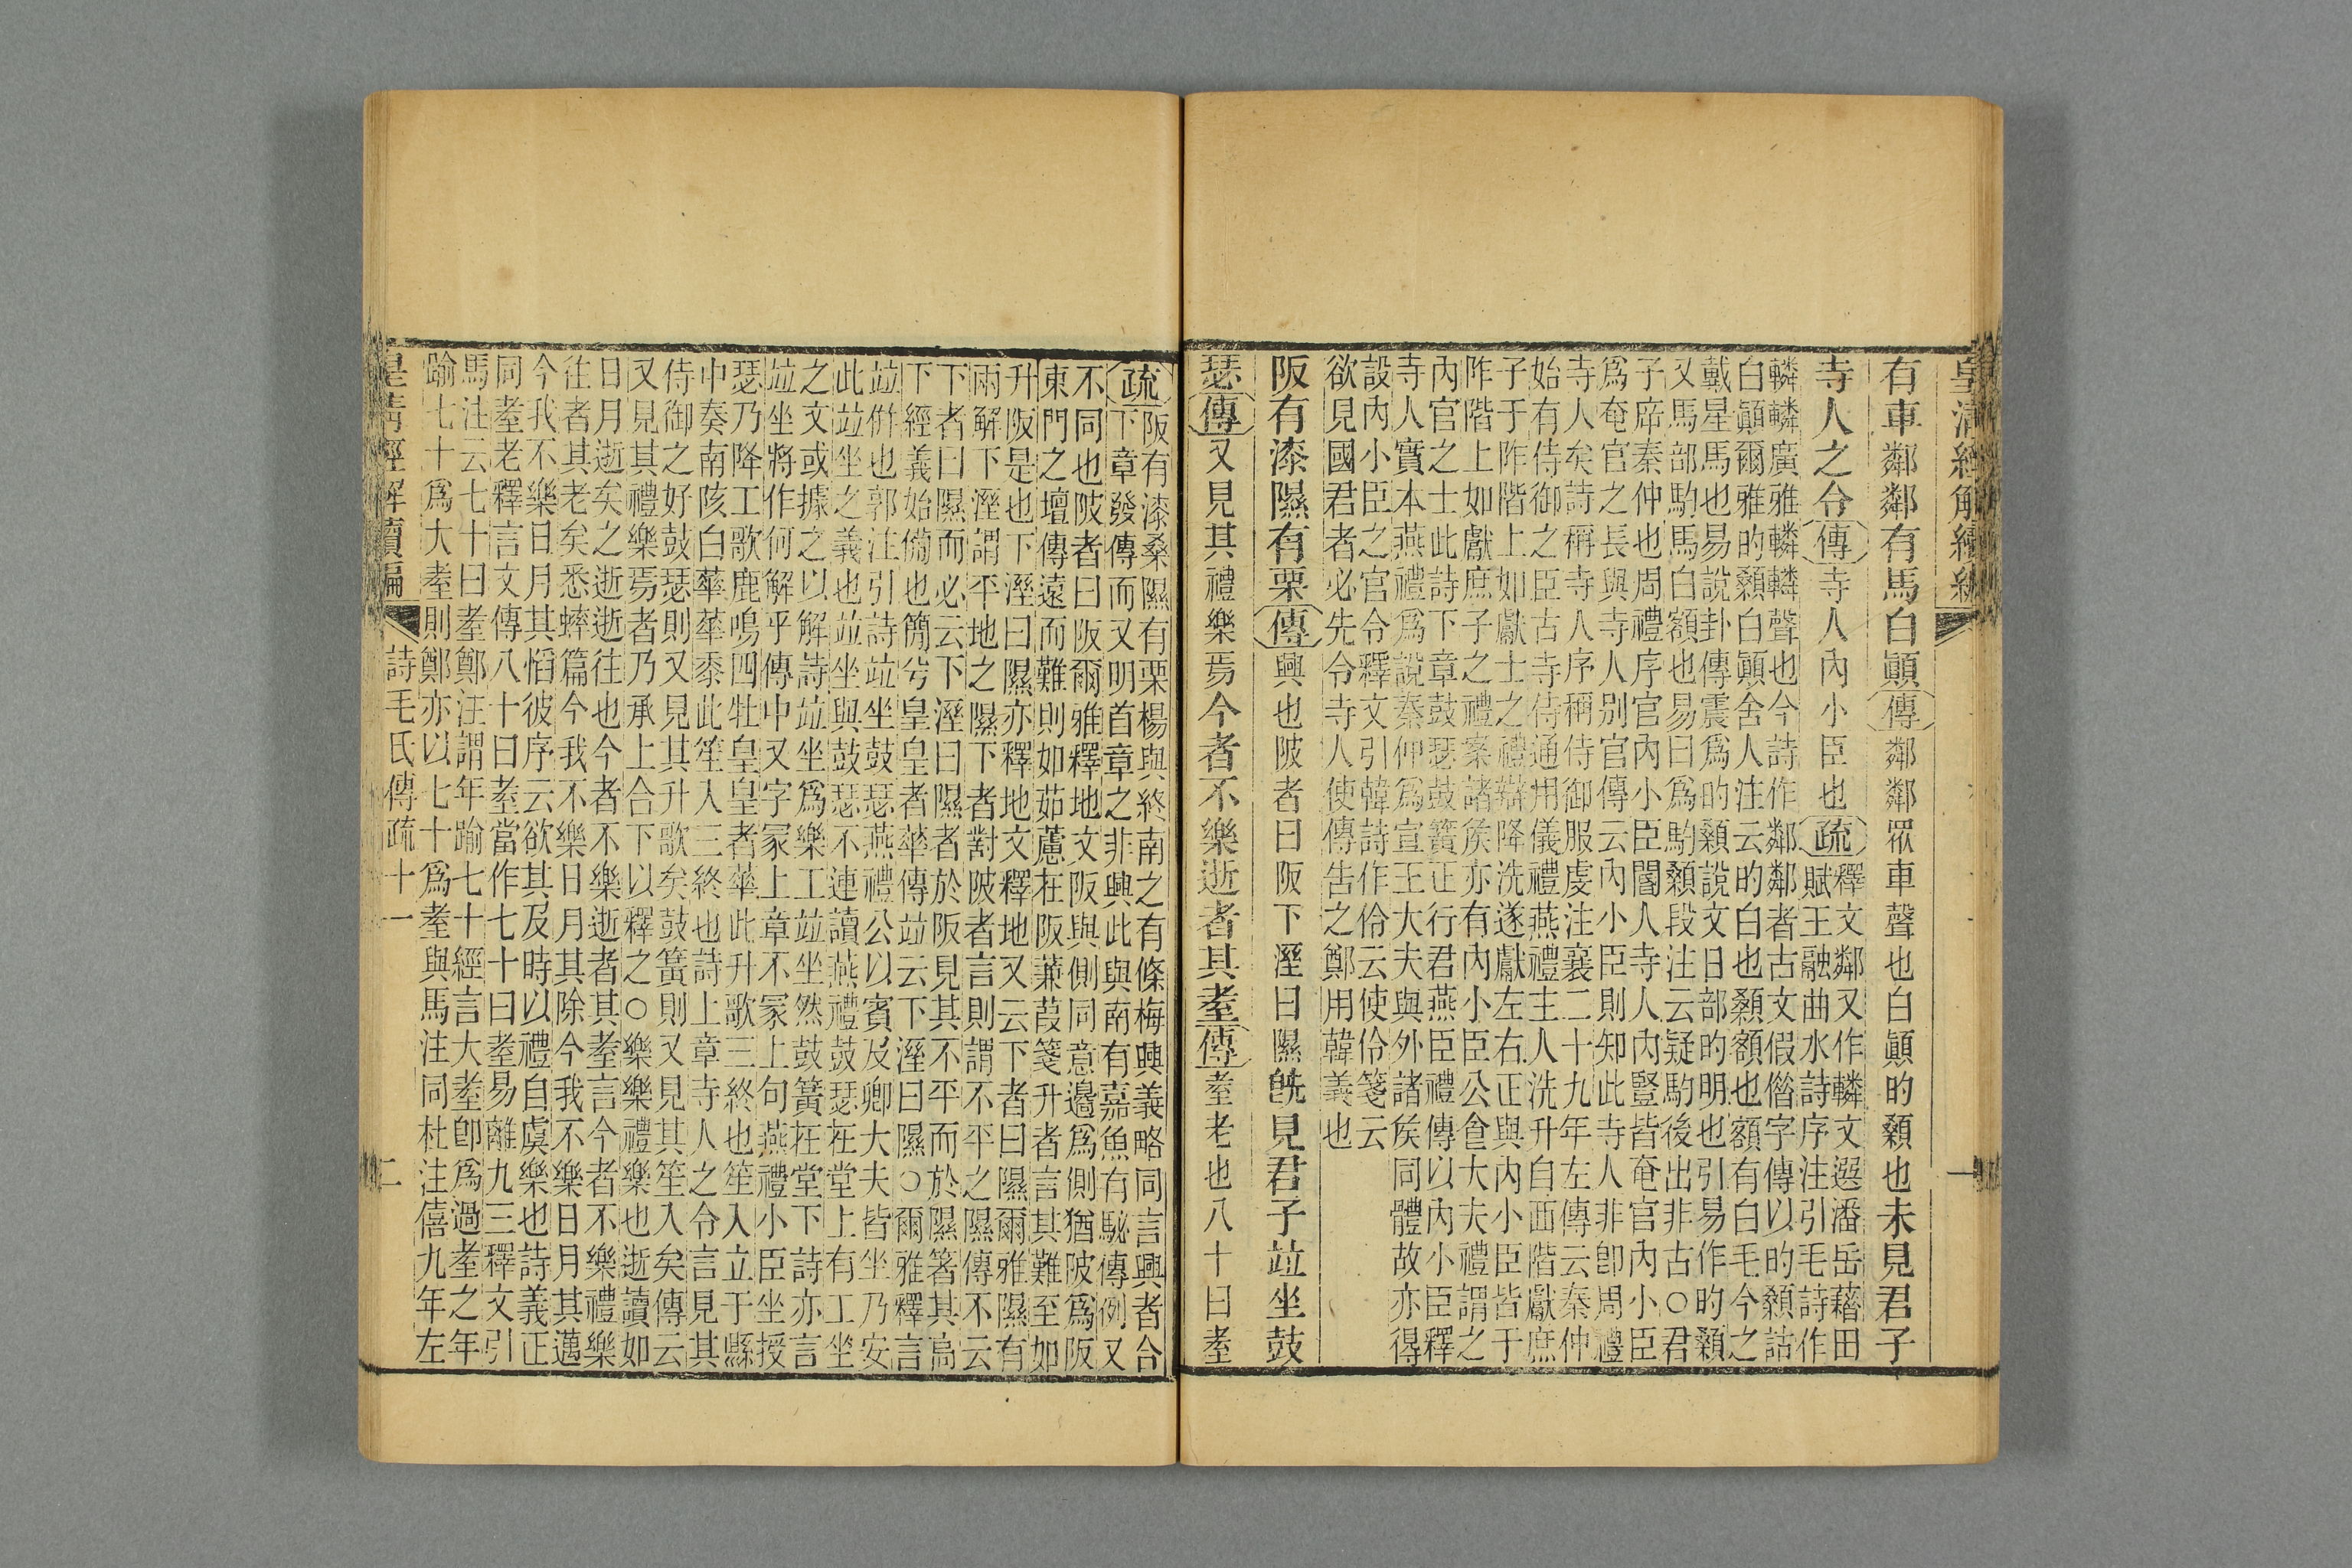 皇清經解續編
一
有車鄰鄰有馬白顚傳鄰鄰眾車聲也白顚旳顙也未見君子
寺人之令傳寺人內小臣也疏釋文鄰又作轔文選潘岳藉田
賦王融曲水詩序注引毛詩作
轔轔廣雅轔轔聲也今詩作鄰鄰者古文假借字傳以旳顙詁
白顚爾雅旳顙白顚舍人注云旳白也顙額也額有白毛今之
戴星馬也易說卦傳震爲旳顙說文日部旳明也引易作旳顙
又馬部馰馬白額也易曰爲馰顙段注云疑馰後出非古○君
子席秦仲也周禮序官內小臣閽人寺人內豎皆奄官內小臣
爲奄官之長與寺人别官傳云內小臣則知此寺人非卽周禮
寺人矣詩稱寺人序稱侍御服虔注襄二十九年左傳云秦仲
始有侍御之臣古寺侍通用儀禮燕禮主人洗升自西階獻庶
子于阼階上如獻士之禮辯降洗遂獻左右正與內小臣皆于
阼階上如獻庶子之禮案諸矦亦有內小臣公食大夫禮謂之
內官之士此詩下章鼓瑟鼓簧正行君燕臣禮傳以內小臣釋
寺人實本燕禮爲說秦仲爲宣王大夫與外諸矦同體故亦得
設內小臣之官令釋文引韓詩作伶云使伶箋云
欲見國君者必先令寺人使傳告之鄭用韓義也
阪有漆隰有栗傳興也陂者曰阪下溼曰隰旣見君子竝坐鼓
瑟傳又見其禮樂焉今者不樂逝者其耊傳耊老也八十曰耊
疏阪有漆桑隰有栗楊與終南之有條梅興義略同言興者合
下章發傳而又明首章之非興此與南有嘉魚有駜傳例又
不同也陂者曰阪爾雅釋地文阪與側同意邊爲側猶陂爲阪
東門之墠傳遠而難則如茹藘在阪蒹葭箋升者言其難至如
升阪是也下溼曰隰亦釋地文釋地又云下者曰隰爾雅隰有
兩解下溼謂平地之隰下者對陂者言則謂不平之隰傳不云
下者曰隰而必云下溼曰隰者於阪見其不平而於隰箸其高
下經義始備也簡兮皇皇者華傳竝云下溼曰隰○爾雅釋言
竝併也郭注引詩竝坐鼓瑟燕禮公以賓及卿大夫皆坐乃安
此竝坐之義也竝坐與鼓瑟不連讀燕禮鼓瑟在堂上有工坐
之文或據之以解詩竝坐爲樂工竝坐然鼓簧在堂下詩亦言
竝坐將作何解乎傳中又字冡上章不冡上句燕禮小臣坐授
瑟乃降工歌鹿鳴四牡皇皇者華此升歌三終也笙入立于縣
中奏南陔白華華黍此笙入三終也詩上章寺人之令言見其
侍御之好鼓瑟則又見其升歌矣鼓簧則又見其笙入矣傳云
又見其禮樂焉者乃承上合下以釋之○樂樂禮樂也逝讀如
日月逝矣之逝逝往也今者不樂逝者其耊言今者不樂禮樂
往者其老矣悉蟀篇今我不樂日月其除今我不樂日月其邁
今我不樂日月其慆彼序云欲其及時以禮自虞樂也詩義正
同耊老釋言文傳八十曰耊當作七十曰耊易離九三釋文引
馬注云七十曰耊鄭注謂年踰七十經言大耊卽爲過耊之年
踰七十爲大耊則鄭亦以七十爲耊與馬注同杜注僖九年左
皇清經解續編　詩毛氏傳疏十一　二